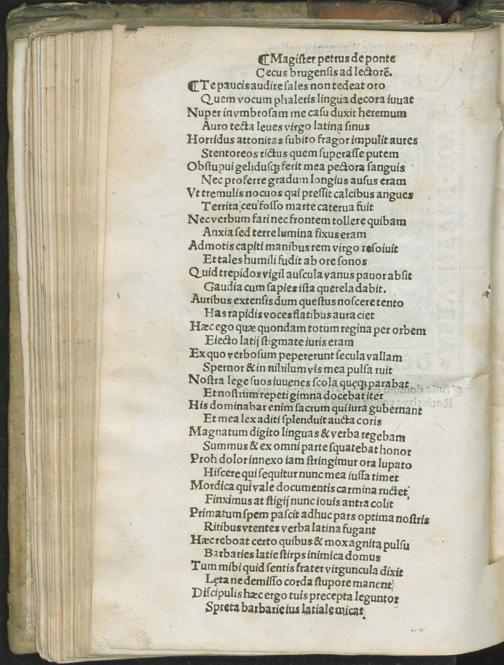 ⁋Magister petrus de ponte
Cecus brugensis ad lectorē.
⁋Te paucis audire sales non tedeat oro
Quem vocum phaleris lingua decora iuuat
Nuper in vmbrosam me casu duxit heremum
Auro tecta leues virgo latina sinus
Horridus attonitas subito fragor impulit aures
Stentoreos rictus quem superasse putem
Obstupui gelidusq; ferit mea pectora sanguis
Nec proferre gradum longius ausus eram
Vt tremulis nocuos qui pressit calcibus angues
Territa ceu fosso marte caterua fuit
Nec verbum fari nec frontem tollere quibam
Anxia sed terre lumina fixus eram
Admotis capiti manibus rem virgo resoiuit
Et tales humili fudit ab ore sonos
Quid trepidos vigil auscula vanus pauor absit
Gaudia cum sapies ista querela dabit.
Auribus extensis dum questus noscere tento
Has rapidis voces flatibus aura ciet
Hæc ego quæ quondam totum regina per orbem
Eiecto latij stigmate iuris eram
Ex quo verbosum pepererunt secula vallam
Spernor & in nihilum vis mea pulsa ruit
Nostra lege suos iuuenes scola queq; parabat
Et nostrum repeti gimna docebat iter
His dominabar enim sacrum qui iura gubernant
Et mea lex aditi splenduit aucta coris
Magnatum digito linguas & verba regebam
Summus & ex omni parte squatebat honor
Proh dolor innexo iam stringimur ora lupato
Hiscere qui sequitur nunc mea iussa timet
Mordica qui vale documentis carmina ructet
Finximus at stigij nunc iouis antra colit
Primatum spem pascit adhuc pars optima nostris
Ritibus vtentes verba latina fugant
Hæc reboat certo quibus & mox agnita pulsu
Barbaries latie stirps inimica domus
Tum mihi quid sentis frater virguncula dixit
Leta ne demisso corda stupore manent
Discipulis hæc ergo tuis precepta leguntor
Spreta barbarie ius latiale micat